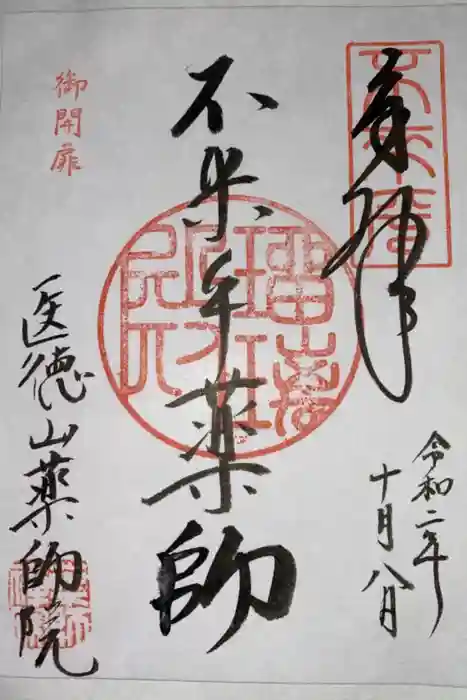 奉拝
令和二年
十月八日
不来乎薬師
御開扉
医徳山薬師院